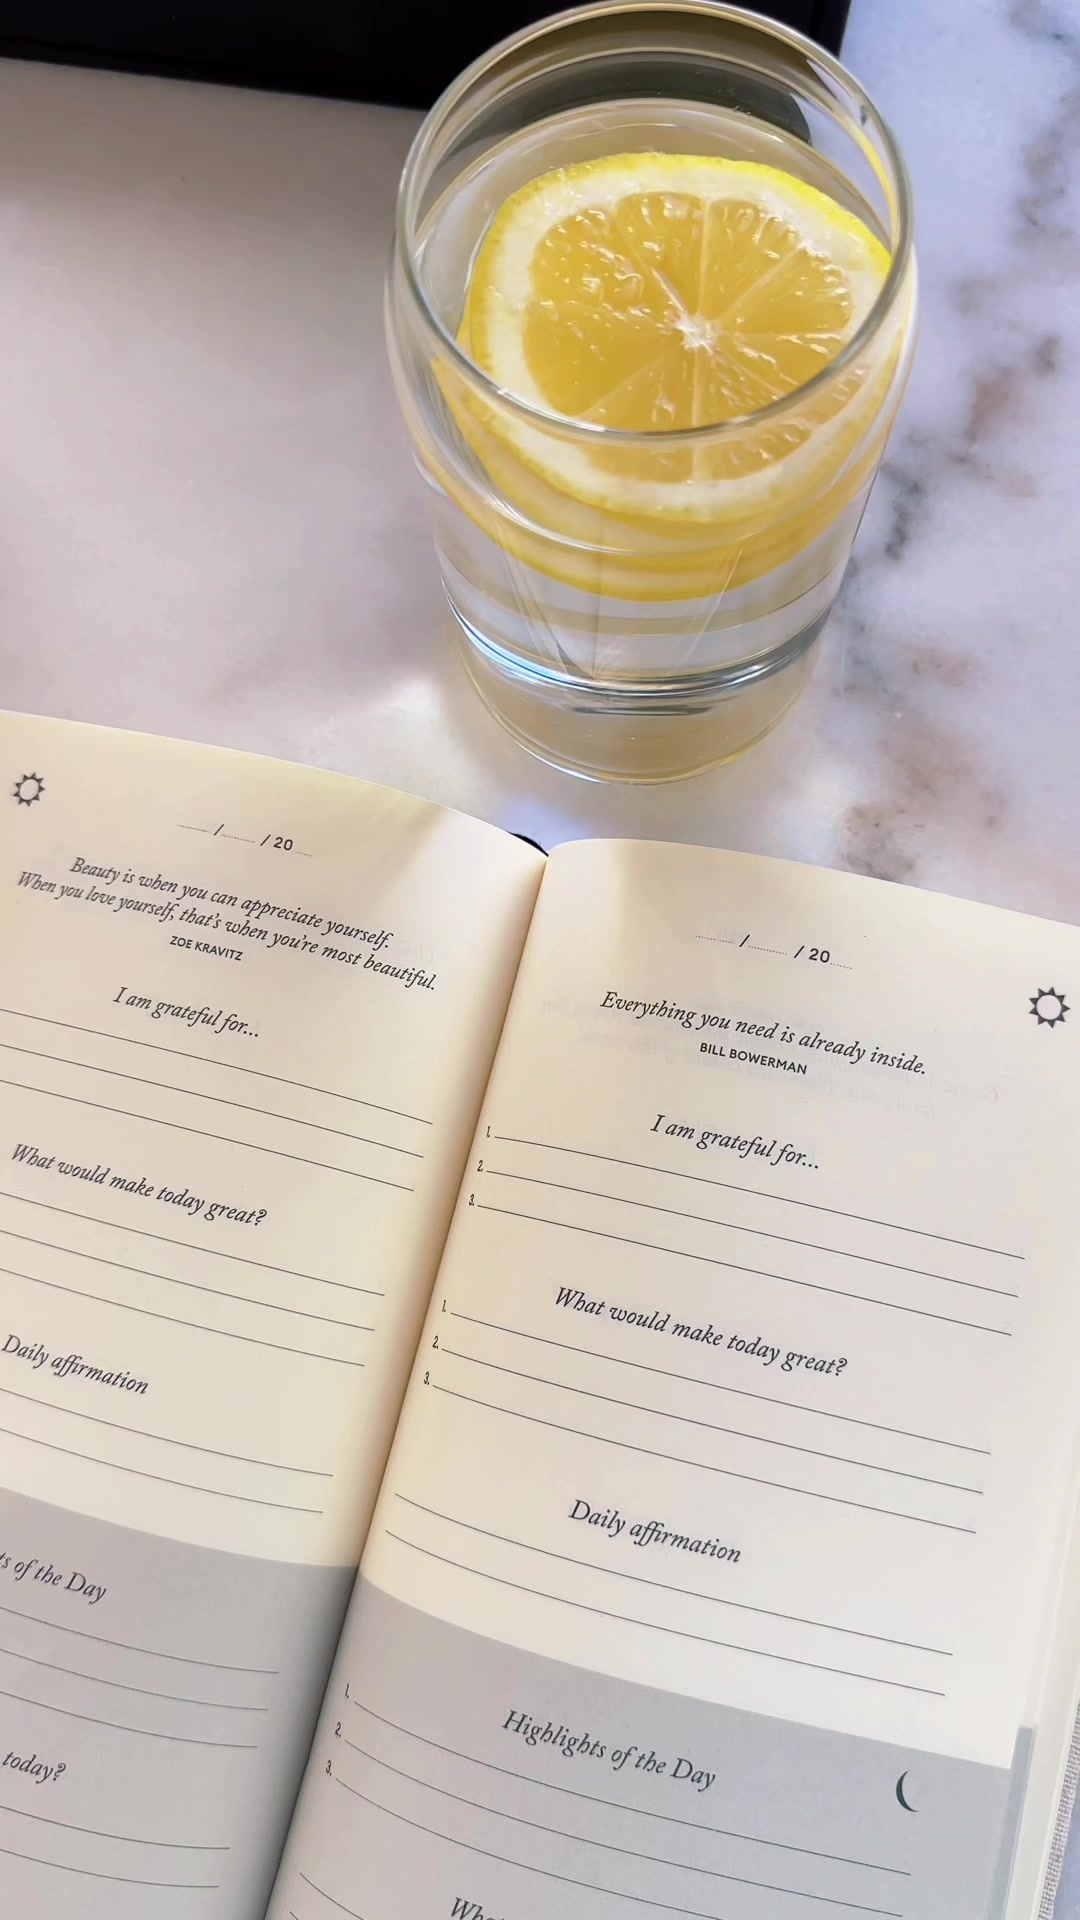 / / 20
Beauty is when you can appreciate yourself.
When you love yourself, that's when you're most beautiful.
ZOE KRAVITZ
I am grateful for...
What would make today great?
Daily affirmation
of the Day
today?
/ / 20
Everything you need is already inside.
BILL BOWERMAN
I am grateful for...
1.
2.
3.
What would make today great?
1.
2.
3.
Daily affirmation
Highlights of the Day
1.
2.
3.